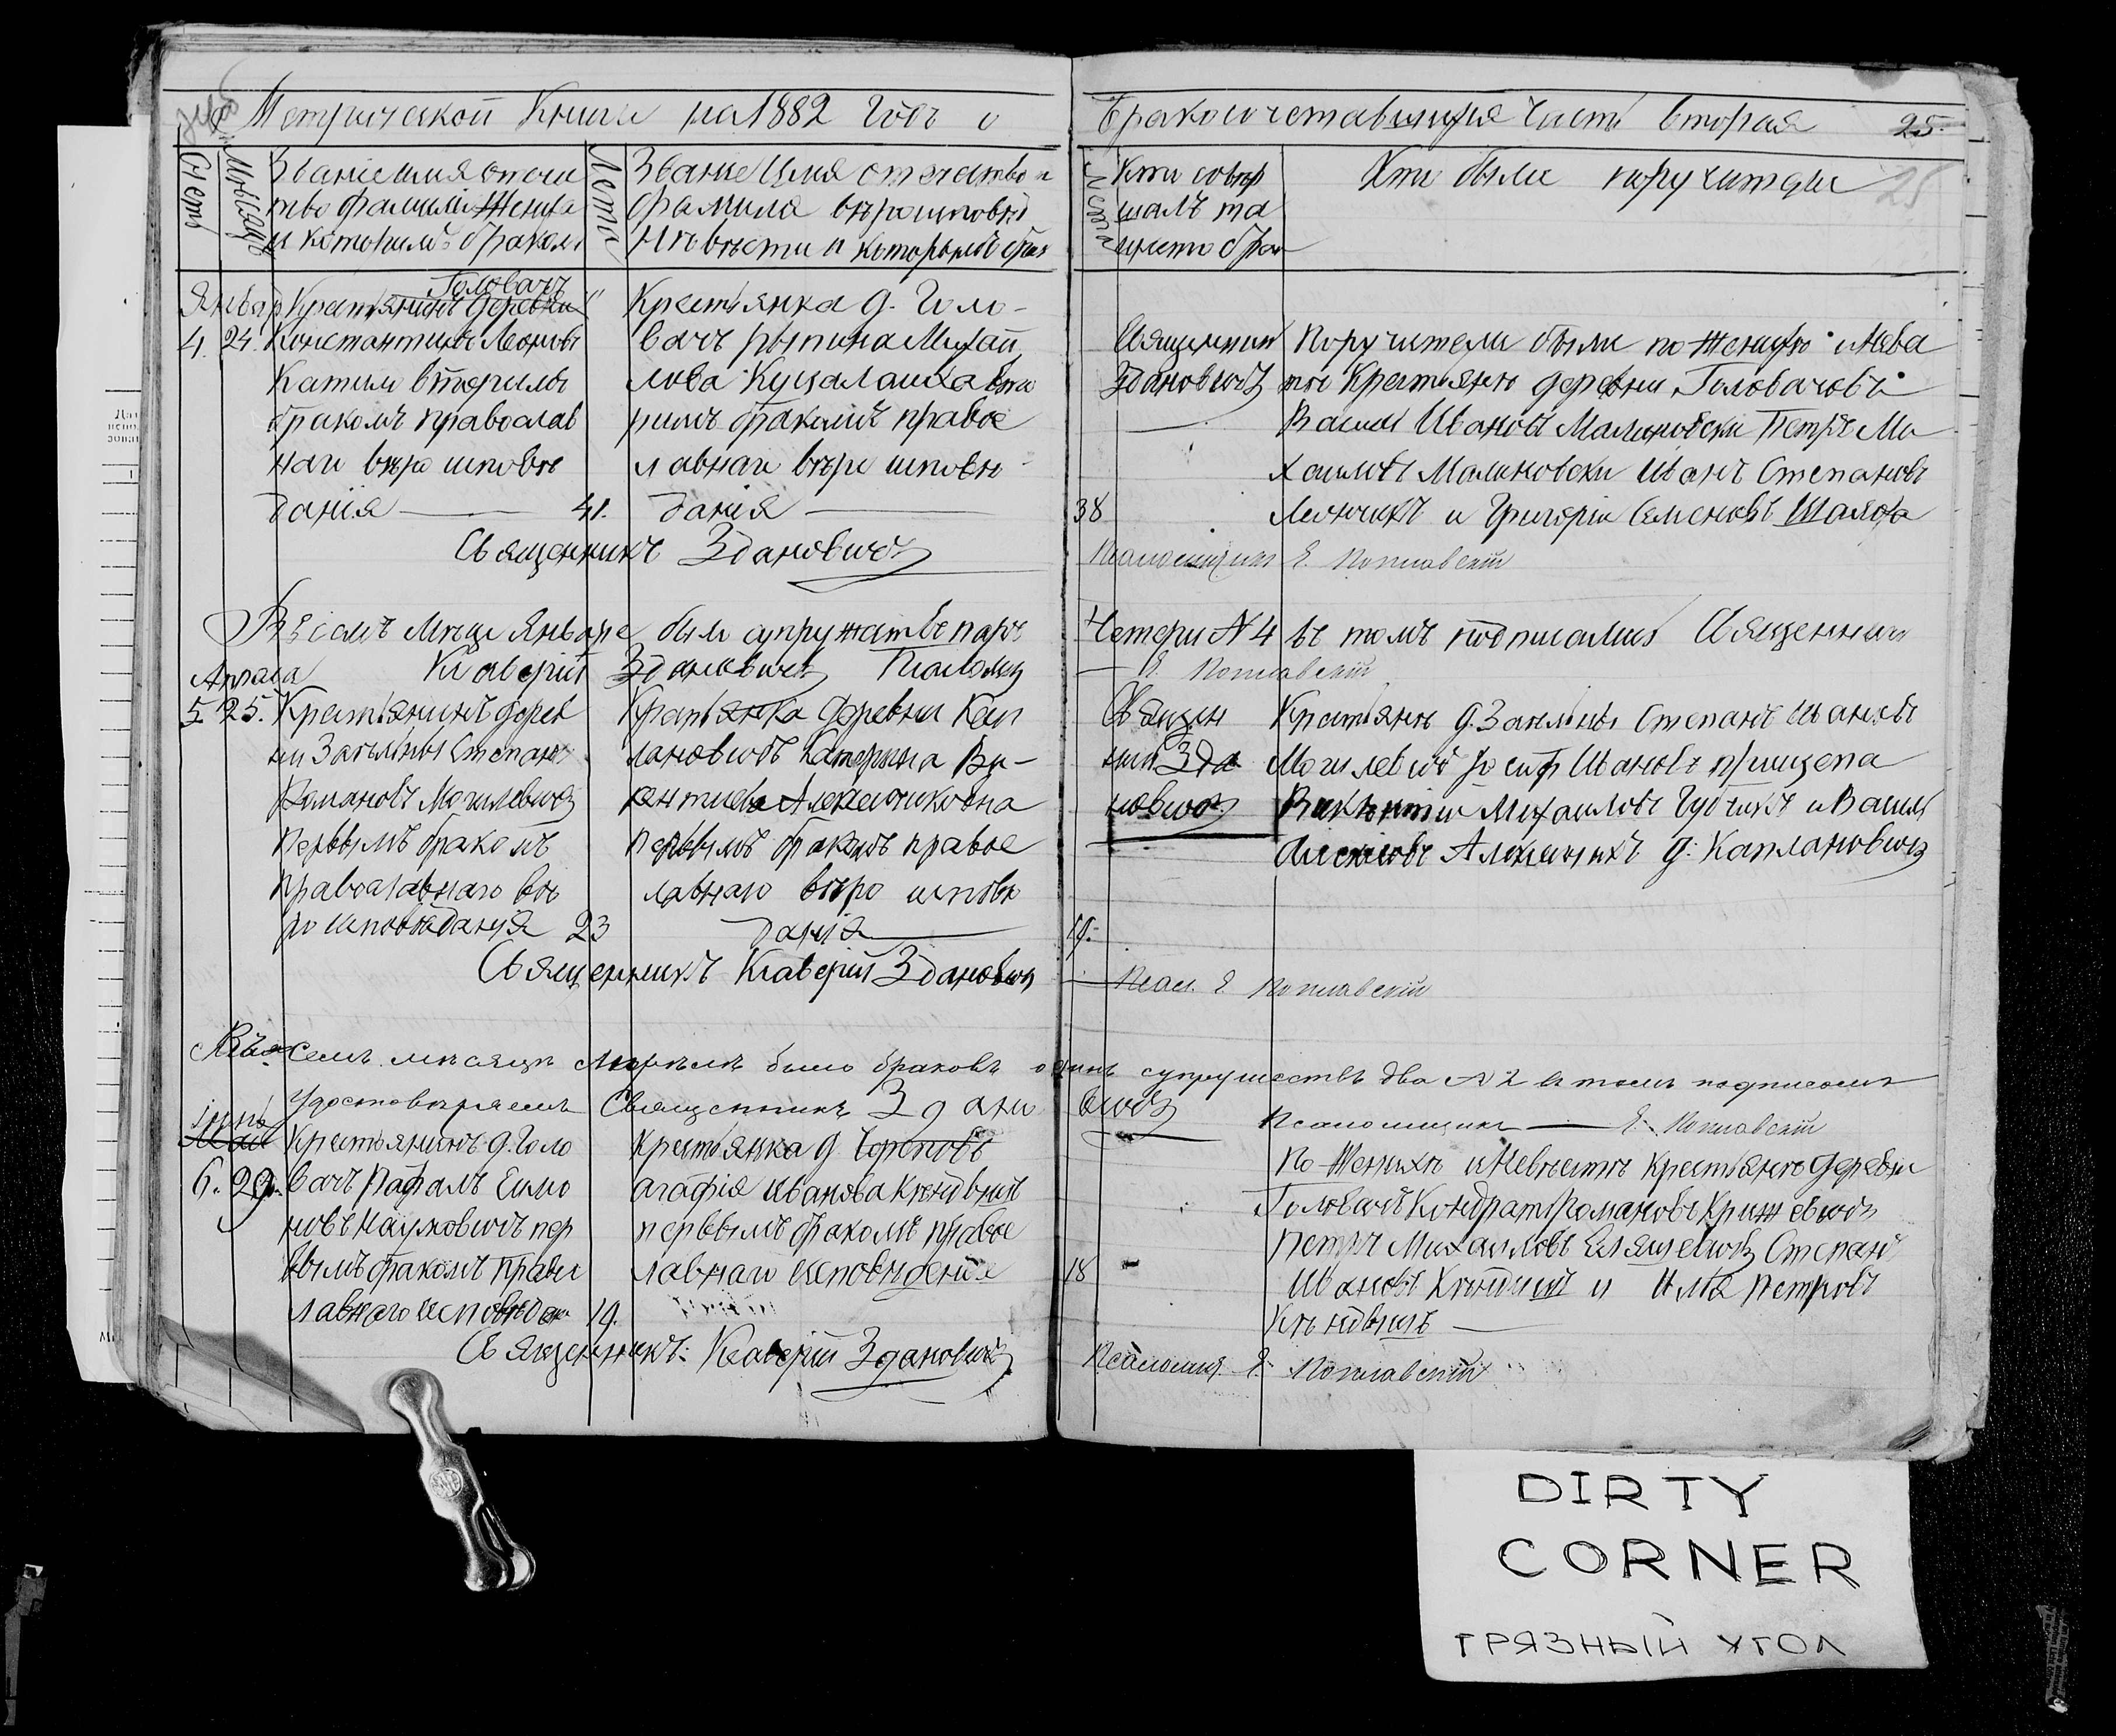 Метрической Книги на 1882 Годъ о
Бракосочетавшихся часть вторая 25.
25
Счетъ
Мѣсяцъ
Званіе имя отече
ство фамилія Жениха
и которимъ бракомъ
Лета
Званіе Имя отечество и
фамилія вѣроисповѣд
Невѣсти и которымъ брак
Лета
Кто совер
шалъ та
инство брак
Кто были поручители
Январ
Головачъ
4. 24. Крестьянинъ деревни
Константинъ Леоновъ
вторимъ
бракомъ православ
наго вѣро исповѣ
данія 41.
Крестьянка д. Голо-
вачъ Михай
лова вто
римъ бракомъ право
лавнаго вѣро исповѣ-
данія 38
Священник
Здановичъ
Поручители были по Жениху и Нева
сте Крестьяне деревни Головачовъ
Васили Ивановъ Малиновски Петръ Ми
хаиловъ Малиновски Иванъ Степановъ
и Григорій Семеновъ Шаляха
Священникъ Здановичъ
Псаломщикъ Е. Поплавскій
Въ семъ Мѣце Январе были супружествъ паръ
Четери N 4 въ томъ подписались Священникъ
Ксаверій Здановичъ Псаломщ
Е. Поплавскій
Апреля
5. 25. Крестьянинъ дерев
ни Степанъ
Романовъ Могилевичъ
Первымъ бракомъ
православнаго вѣ
ро исповѣданія 23
Крестьянка деревни Кап
лановичъ Катерина Ви-
кентиева Алексейчиковна
первымъ бракомъ право
лавнаго вѣро исповѣ
данія 19.
Священ
ник Зда
новичъ
Крестьяне д. Степанъ Ивановъ
Могилевичъ Иосифъ Ивановъ Прищепа
Викентий Михаиловъ и Васили
Алексеевъ д. Каплановичъ
Священникъ Ксаверій Здановичъ
Псал. Е. Поплавскій
Въ Семъ мѣсяцѣ Апрѣлѣ было браковъ одинъ супружествъ два N 2 в томъ подписомъ
удостовѣряемъ Священникъ Здано
вичъ
Псаломщикъ Е. Поплавскій
Іюнь
6. 29. Крестьянинъ д. Голо
вачъ Рафалъ Симо
новъ Наумовичъ пер
вымъ бракомъ право
лавнаго исповѣдан 19.
Крестьянка д.
Агафія Иванова
первымъ бракомъ право
лавнаго исповѣденія 18
По Жениху и Невѣсте крестьяне деревни
Головачъ Кондратъ Романовъ Крижевичъ
Петръ Михаиловъ Еляшевичъ Степанъ
Ивановъ и Илья Петровъ
Священникъ: Ксаверій Здановичъ
Псаломщ. Е. Поплавскій
DIRTY
CORNER
ГРЯЗНЫЙ УГОЛ